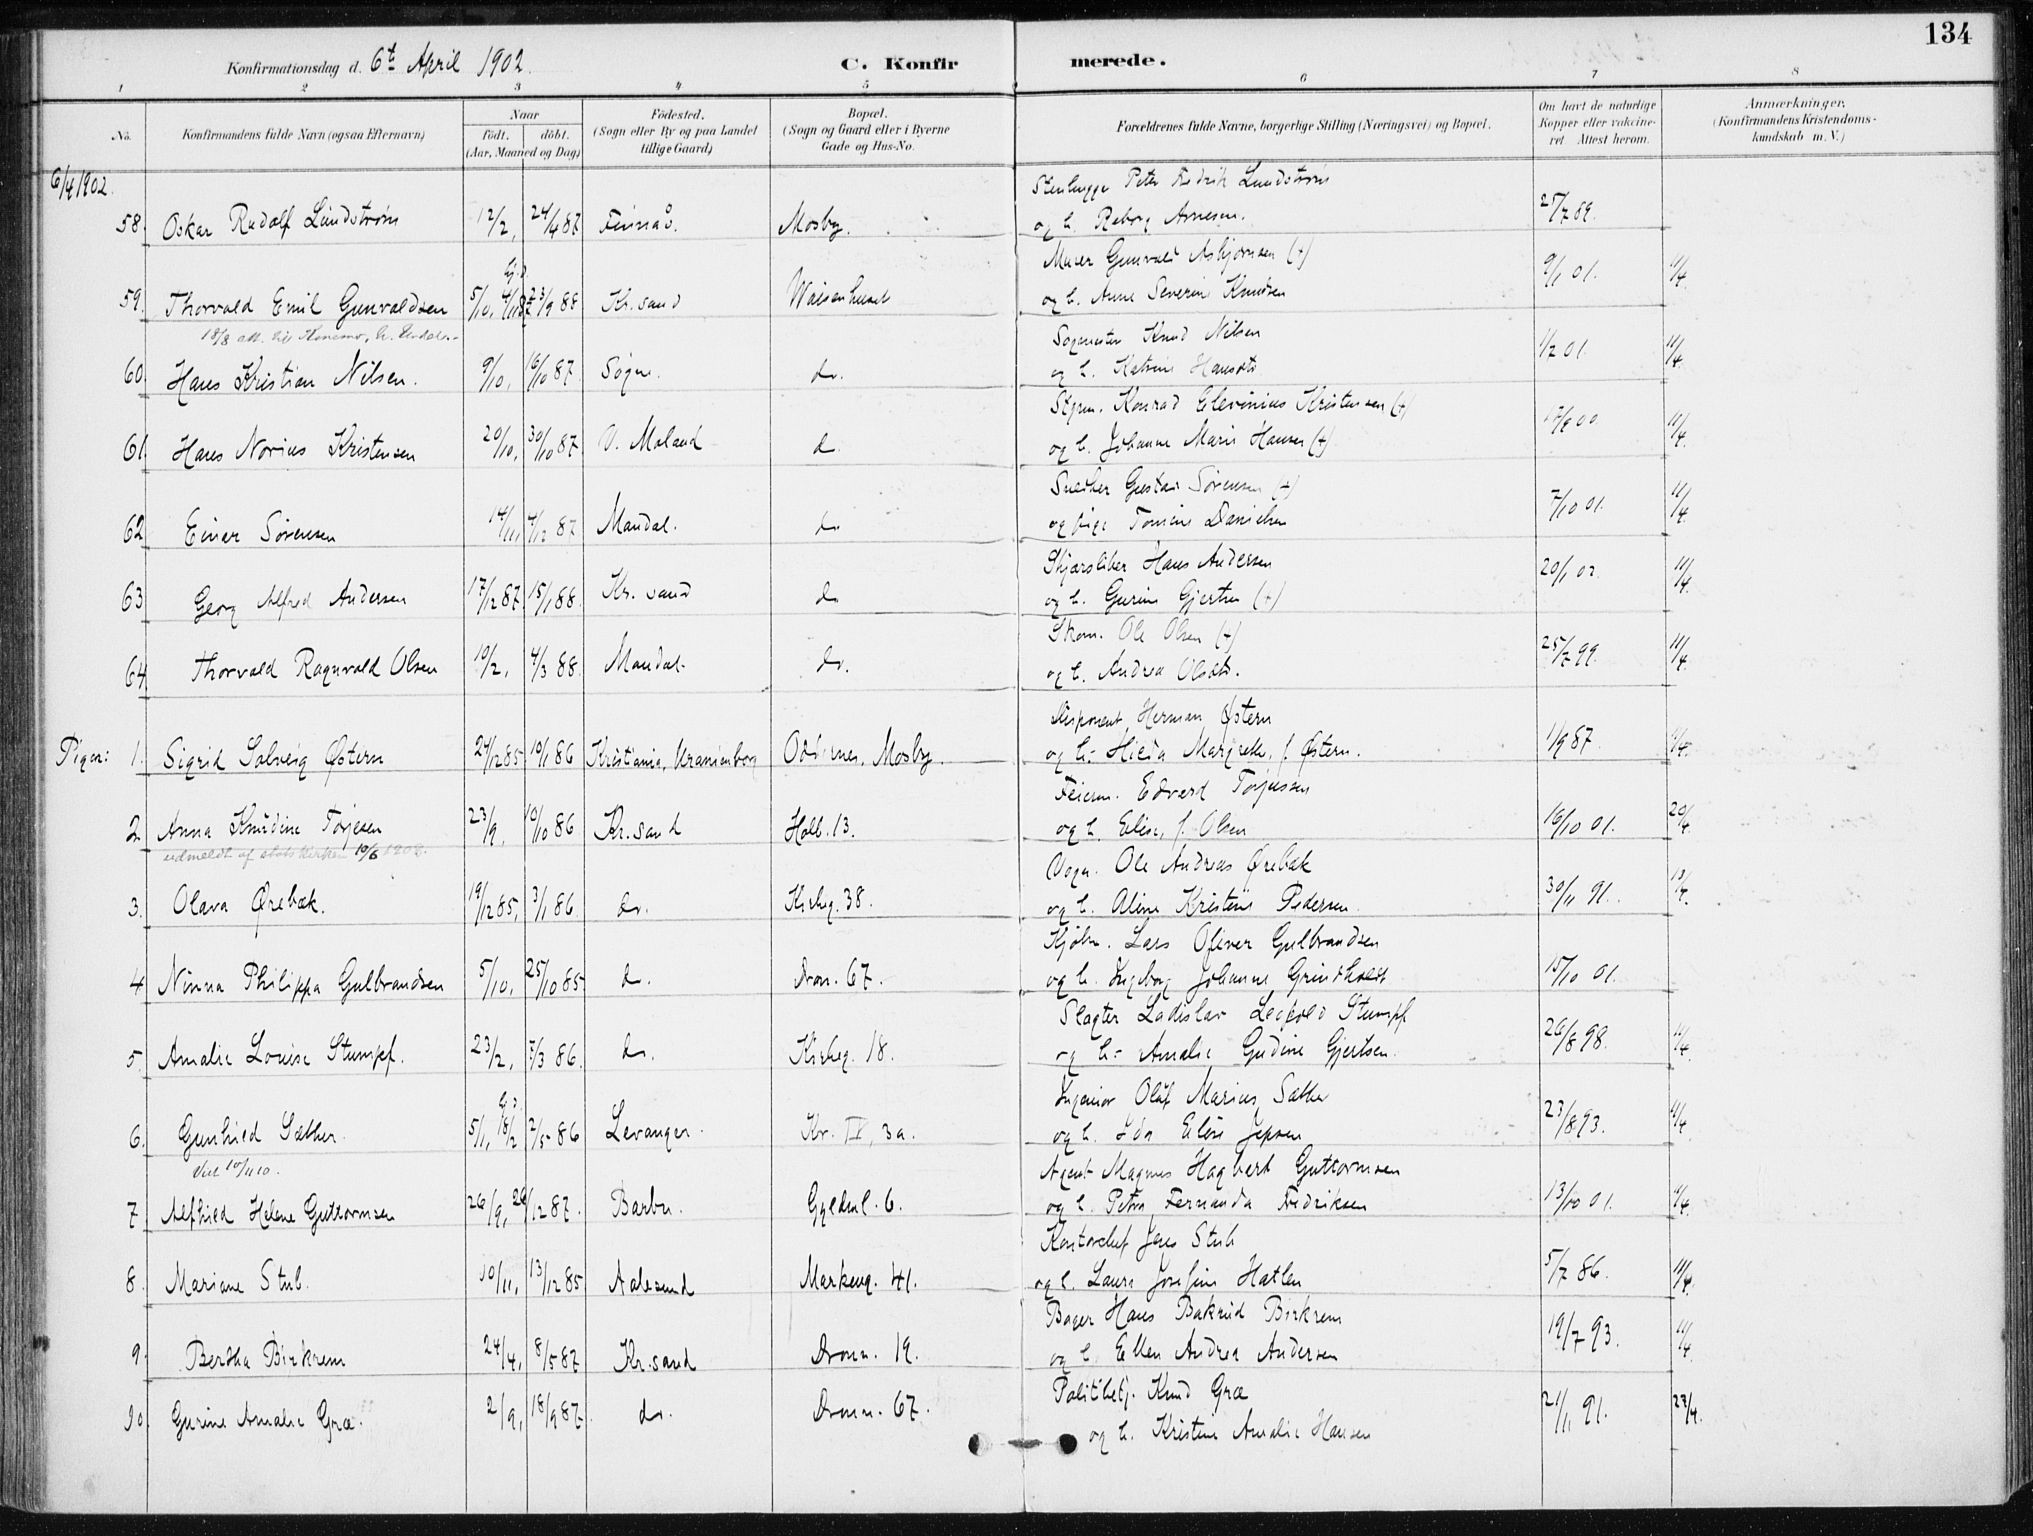 134
Konfirmationsdag d. 6t April 1902. C. Konfirmerede.
1 2 3 4 5 6 7 8
No. Konfirmandens fulde Navn (ogsaa Efternavn) Naar født. døbt. (Aar, Maaned og Dag) Fødested. (Sogn eller By og paa Landet tillige Gaard) Bopæl. (Sogn og Gaard eller i Byerne Gade og Hus-No. Forældrenes fulde Navne, borgerlige Stilling (Næringsvei) og Bopæl. Om havt de naturlige Kopper eller vakcineret. Attest herom. Anmærkninger. (Konfirmandens Kristendomskundskab m. V.)
6/4 1902.
Stenhugger Peter Fredrik Lundstrøm
58. Oskar Rudolf Lundstrøm 12/2, 24/4 87 Finnaas. Mosby. og h. Reborg Arnesen. 25/7 89.
Murer Gunvald Asbjørnsen (+)
59. Thorvald Emil Gunvaldsen 5/10, 23/9 88 Kr.sand Waisenhuset og h. Anne Severine Knudsen 9/1 01. 11/4
18/8 att. til
Sogmester Knud Nilsen
60. Hans Kristian Nilsen. 9/10, 16/10 87 Søgne. do. og h. Katrine Hansdt. 1/2 01 11/4
Styrm. Konrad Elevinius Kristensen (+)
61. Hans Norius Kristensen 20/10, 30/10 87 V. Moland d. og h. Johanne Marie Hansen (+) 11/4
Snedker Gustav Sørensen (+)
62 Einar Sørensen 14/11, 4/12 87 Mandal. do og pige Tomine Danielsen 7/10 01. 11/4
Skjærsliber Hans Andersen
63 Georg Alfred Andersen 17/12 87. 15/1 88. Kr. sand do og h. Gurine Gjertsen (+) 20/1 02. 11/4
Skom. Ole Olsen (+)
64 Thorvald Ragnvald Olsen 10/2, 4/3 88 Mandal do. og h. Andrea Olsdt. 25/7 99. 11/4
Disponent Herman Østern
Piger: 1. Sigrid Solveig Østern 24/12 85 10/1 86 Kristiania, Uranienborg Oddernes, Mosby. og h. Hilda Margrethe, f. Østern. 1/9 87. 11/4
Feierm. Edvard Torjussen
2. Anna Knudine Torjesen 23/9, 10/10 86 Kr.sand Holb. 13. og h. Elise, f. Olsen 16/10 01. 20/4
udmeldt af statskirken 10/6 1908.
Vogn. Ole Andreas Ørebæk
3. Olava Ørebæk. 19/12 85, 3/1 86 do. Kirkeg. 38. og h. Aline Kristine Pedersen 30/11 91.
Kjøbm. Lars Oliver Gulbrandsen
4 Ninna Philippa Gulbrandsen 5/10, 25/10 85 d. Dron. 67. og h. Ingeborg Johanne Grindholdt 15/10 01.
Slagter Ladislav Leopold Stumpf
5. Amalie Louise Stumpf. 23/2, 7/3 86. do. Kirkeg. 18. og h. Amalie Gudine Gjertsen. 26/8 98. 11/4
Ingeniør Oluf Marius Sæther
6. Gunhild Sæther. 5/1, 18/2 2/5 86 Levanger. Kr. IV, 3a. og h. Ida Elise Jepsen 23/8 93. 11/4
10/11 10.
Agent Magnus Hagbert Guttormsen
7. Alfhild Helene Guttormsen 26/9, 26/12 87. Barbu. Gyldenl. 6. og h. Petra Fernanda Fredriksen 13/10 01. 11/4
Kontorchef Jens Stub
8. Mariane Stub. 10/11, 13/12 85 Aalesund Markeng. 41. og h. Laura Josefine Hatlen 5/7 86. 11/4
Bager Hans Bakrud Birkrem
9. Bertha Birkrem 24/4, 8/5 87 Kr.sand Dronn. 19. og h. Ellen Andrea Andersen 19/7 93. 11/4
Politibetj. Knud Græ
10. Gurine Amalie Græ. 2/9, 18/9 87. do. Dronn. 67. og h. Kristine Amalie Hansen 21/11 91. 23/4.